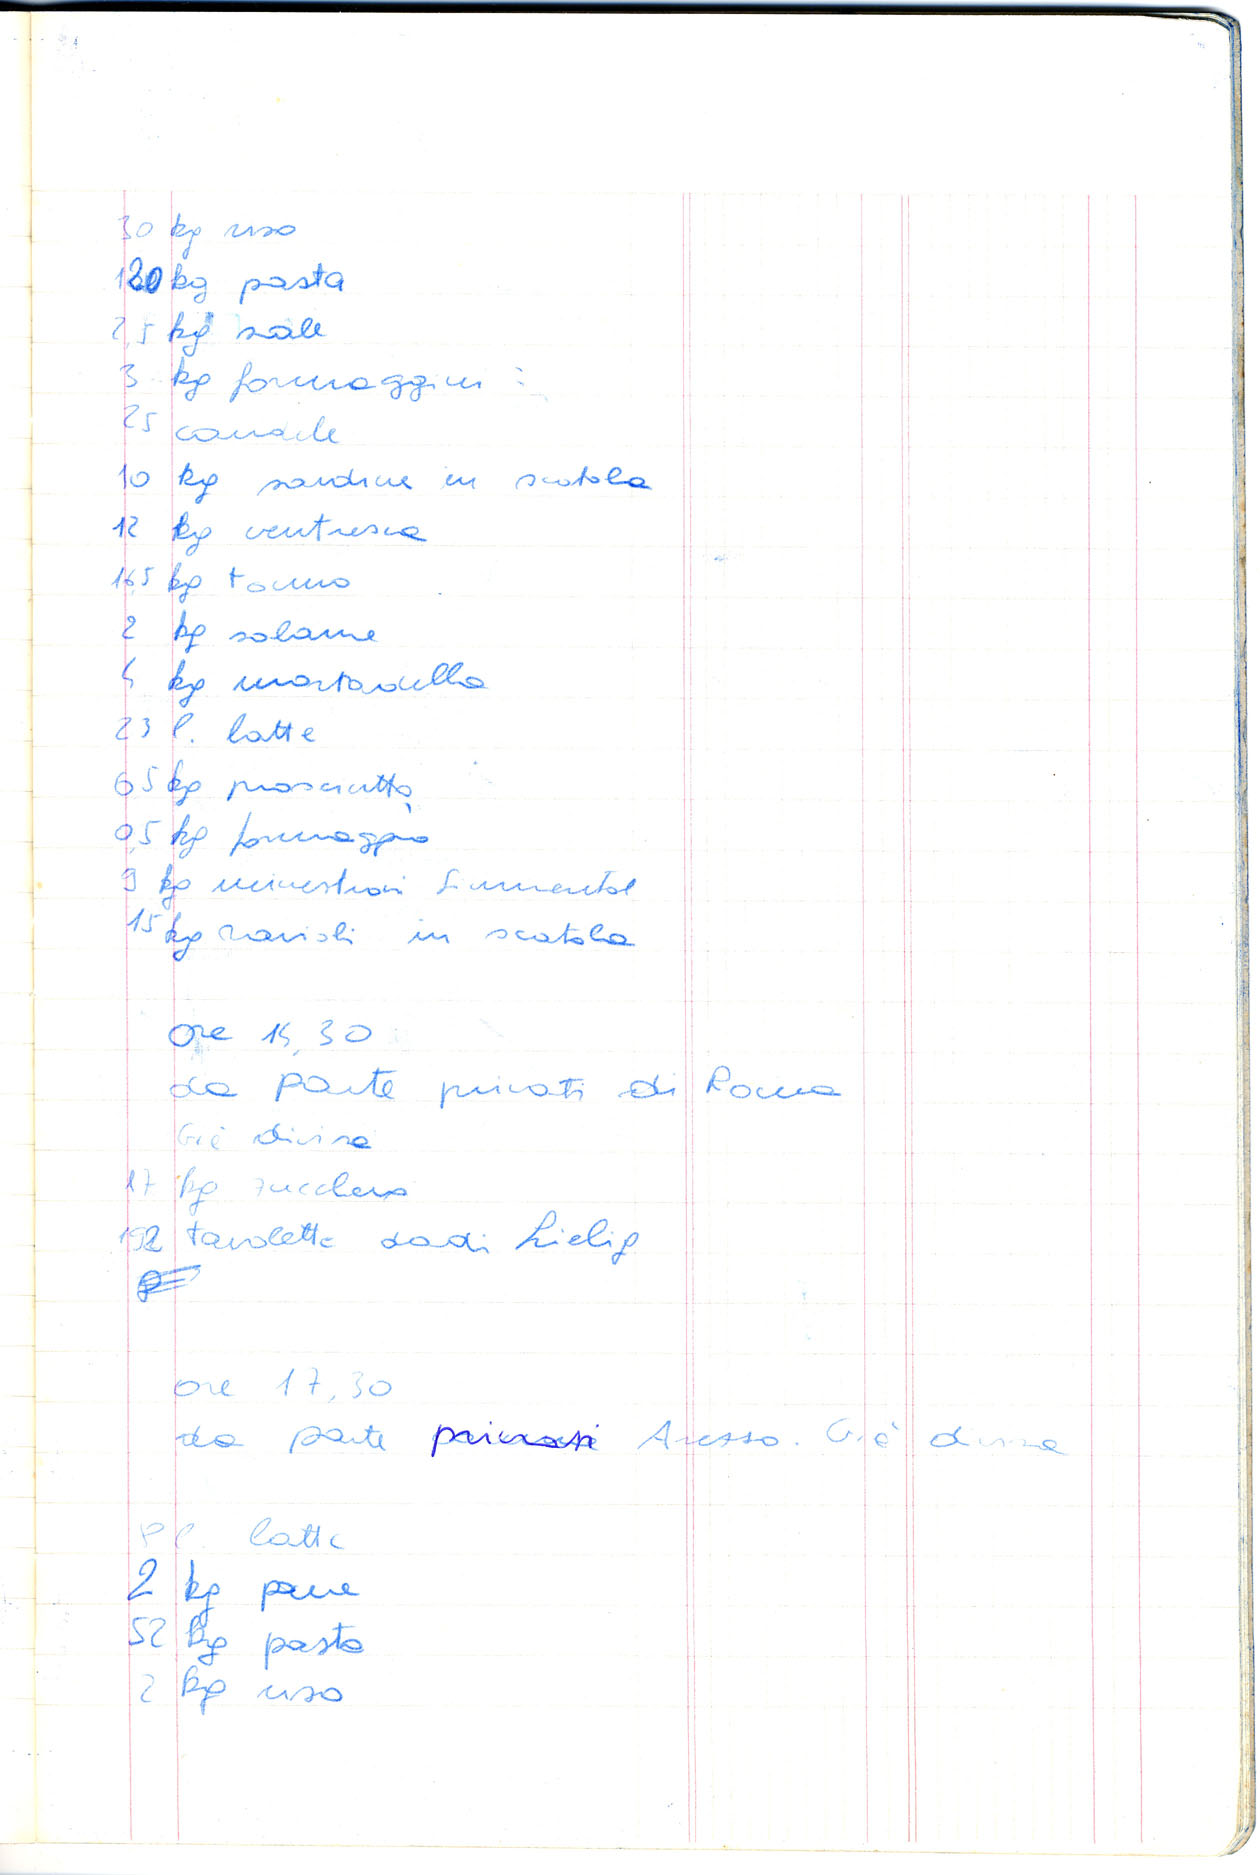 30 kg riso
120 kg pasta
2,5 kg sale
3 kg formaggini
25 candele
10 kg sardine in scatola
12 kg ventresca
16,5 kg tonno
2 kg salame
kg mortadella
23 l. latte
0,5 kg prosciutto
0,5 kg formaggio
3 kg minestroni Simmental
15 kg ravioli in scatola
ore 15,30
da parte privati di Roma
Già divisa
17 kg zucchero
192 tavolette dadi Liebig
ore 17,30
da parte privati Aresso. Già divisa
l. latte
2 kg pane
52 kg pasta
2 kg riso